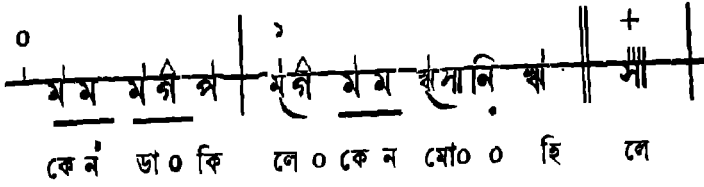 ০ ১ +
ম ম ম গ প ম গ ম ম ধ সা নি ধ সা
কে ন ডা ০ কি লে ০ কে ন মো ০ ০ হি লে